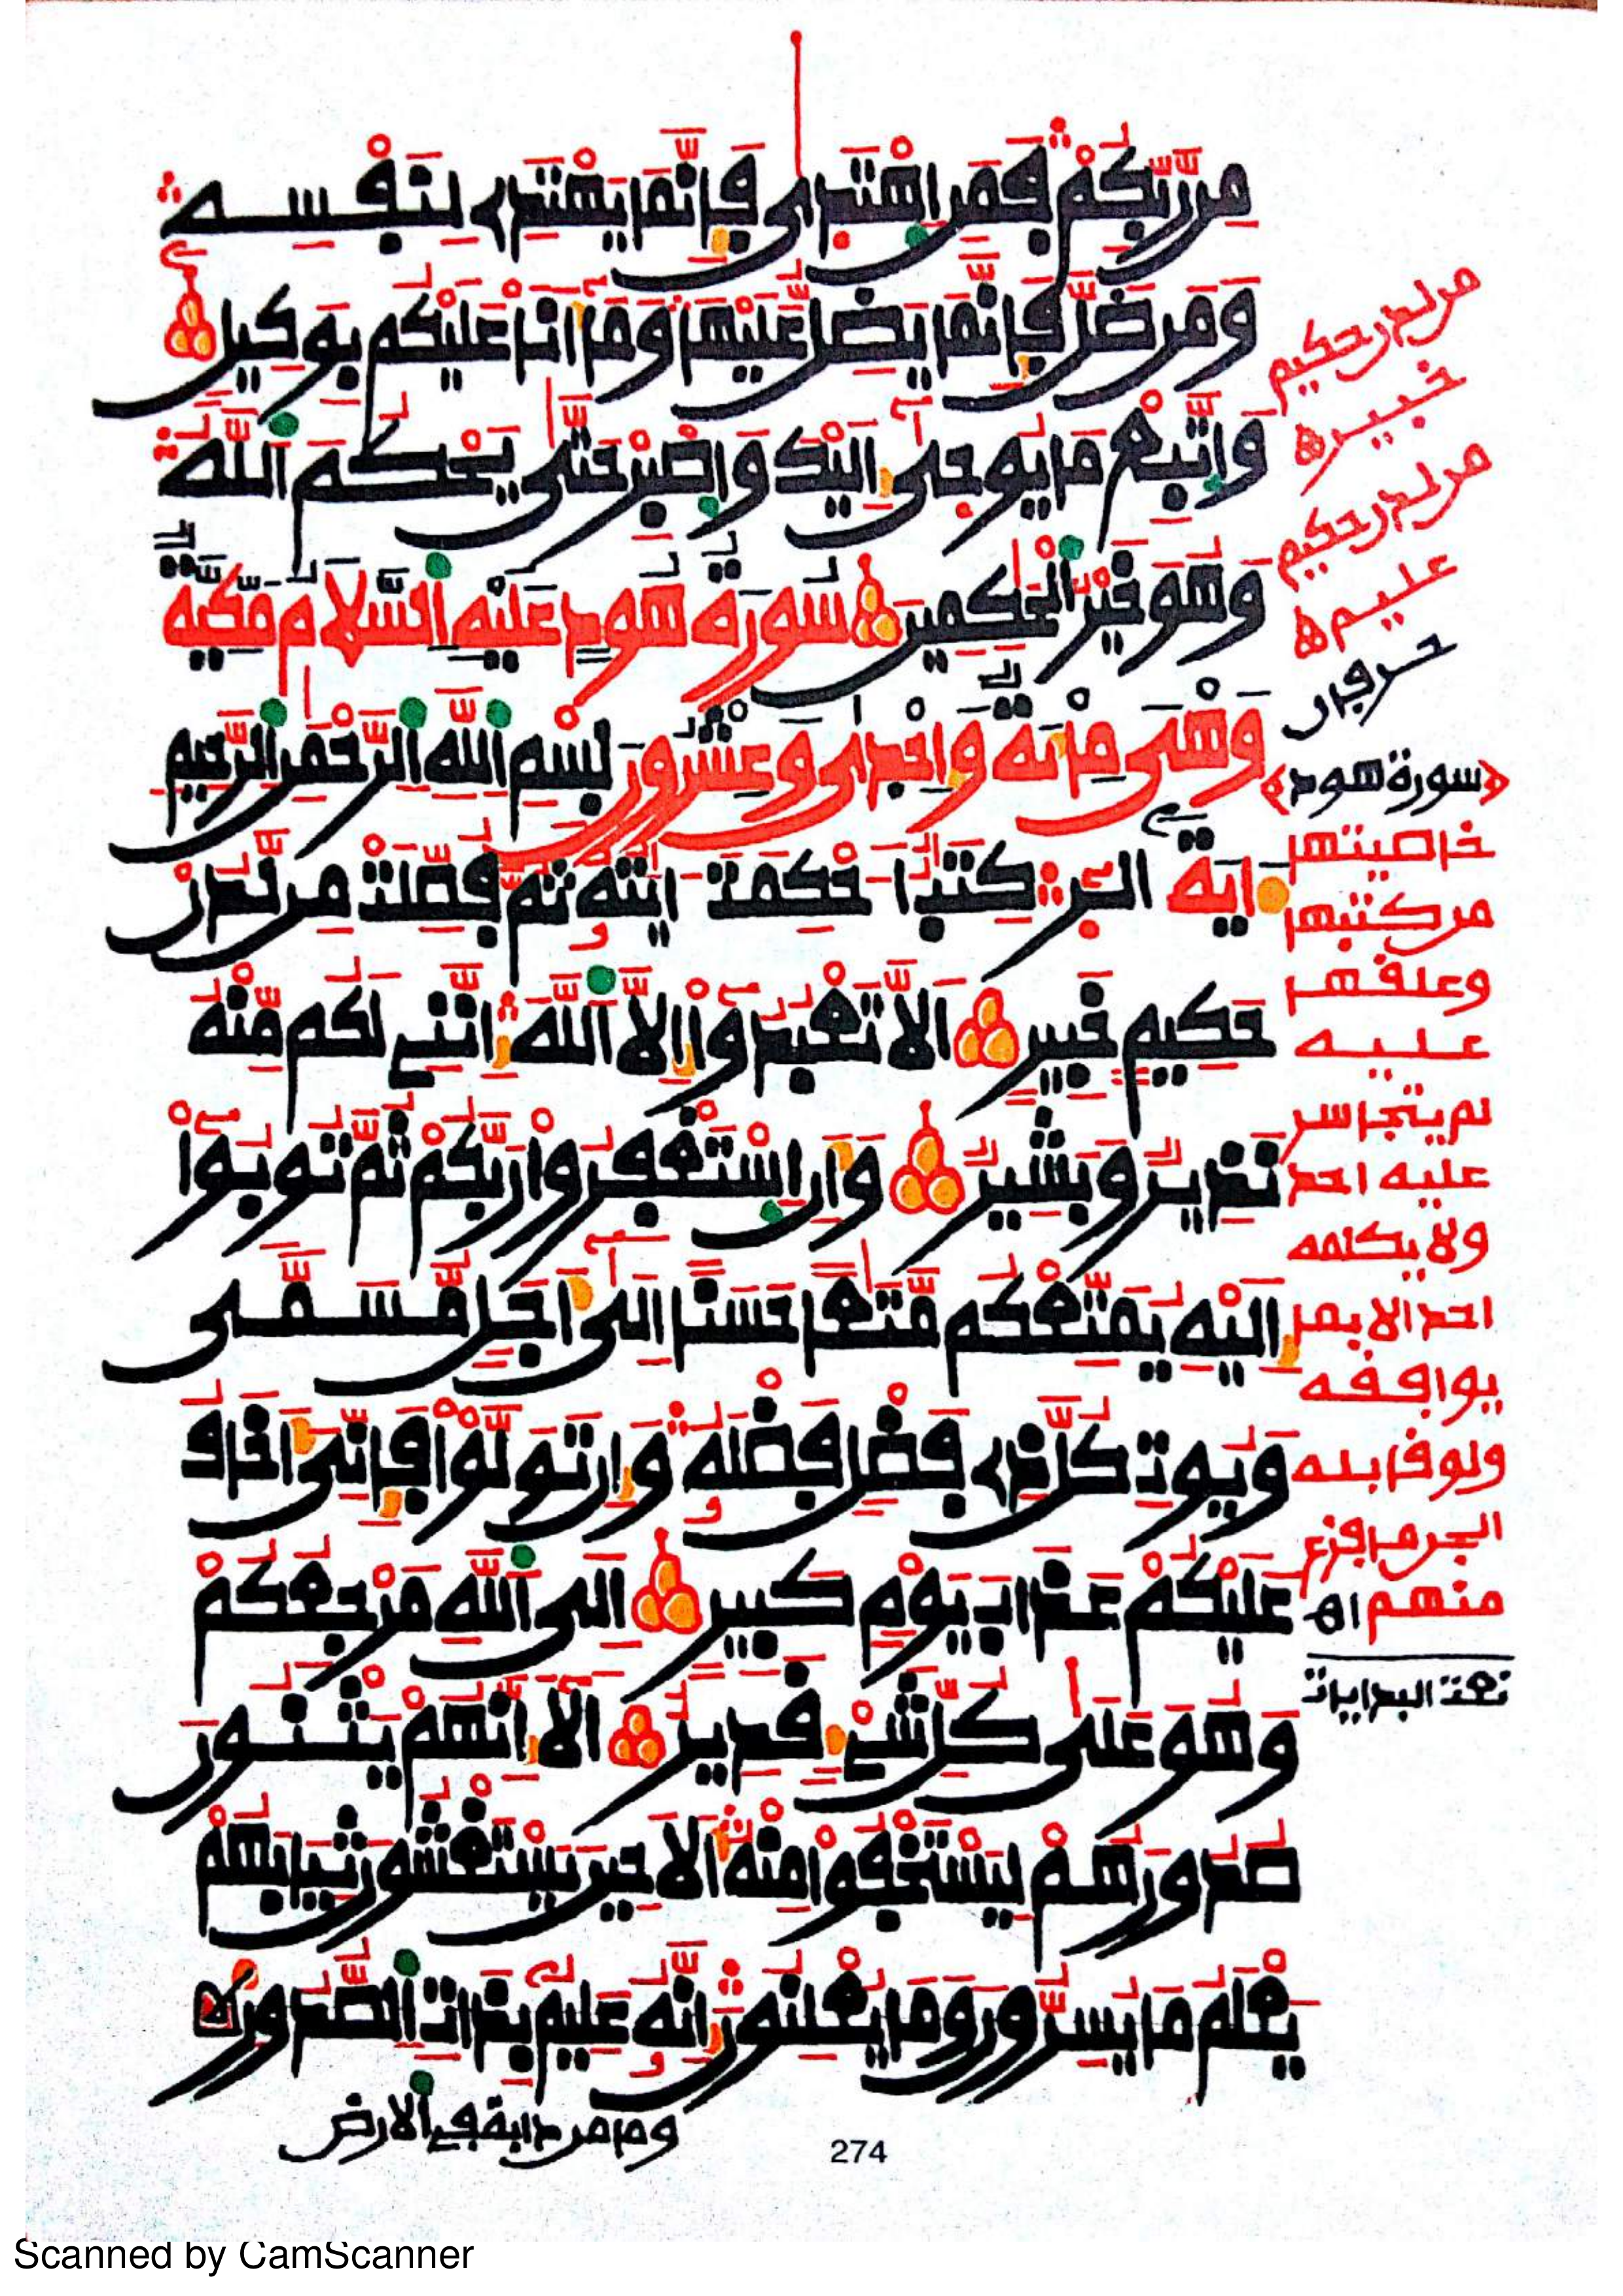 مِن رَّبِّكُمْ فَمَنِ اهْتَدَى فَإِنَّمَا يَهْتَدِے لِنَفْسِهِ
وَمَن ضَلَّ فَإِنَّمَا يَضِلُّ عَلَيْهَا وَمَآ أَنَا عَلَيْكُم بِوَكِيلٍ
وَاتَّبِعْ مَا يُوحَىٰٓ إِلَيْكَ وَاصْبِرْ حَتَّىٰ يَحْكُمَ اَللَّهُ
وَهُوَ خَيْرُ اُلْحَٰكِمِينَ سُورَةُ هُودٍ عَلَيْهِ اِلسَّلَامُ مَكِّيَّةٌ
وَهْىَ مِائَةٌ وَإِحْدَىٰ وَعِشْرُونَ بِسْمِ اِللَّهِ اِلرَّحْمَٰنِ اِلرَّحِيمِ
ءَايَةً الٓر كِتَٰبٌ ا۟حْكِمَتَ اٰيَٰتُهُۥ ثُمَّ فُصِّلَتْ مِن لَّدُنْ
حَكِيمٍ خَبِيرٍ أَلَّا تَعْبُدُوٓا۟ إِلَّا اَللَّهَ إِنَّنِے لَكُم مِّنْهُ
نَذِيرٌ وَبَشِيرٌ وَأَنِ اِسْتَغْفِرُوا۟ رَبَّكُمْ ثُمَّ تُوبُوٓا۟
إِلَيْهِ يُمَتِّعْكُم مَّتَٰعًا حَسَنًا إِلَىٰٓ أَجَلٍ مُّسَمًّى
وَيُوتِ كُلَّ ذِے فَضْلٍ فَضْلَهُۥ وَإِن تَوَلَّوْا۟ فَإِنِّىَ أَخَافُ
عَلَيْكُمْ عَذَابَ يَوْمٍ كَبِيرٍ إِلَى اَللَّهِ مَرْجِعُكُمْ
وَهُوَ عَلَىٰ كُلِّ شَےْءٍ قَدِيرٌ أَلَآ إِنَّهُمْ يَثْنُونَ
صُدُورَهُمْ لِيَسْتَخْفُوا۟ مِنْهُ أَلَا حِينَ يَسْتَغْشُونَ ثِيَابَهُمْ
يَعْلَمُ مَا يُسِرُّونَ وَمَا يُعْلِنُونَ إِنَّهُۥ عَلِيمٌ بِذَاتِ اِلصُّدُورِ
وما من دابة في الارض
274
من لدن حكيم
خبيره
من لدن حكيم
عليمه
حرفان
سورة هود
خاصيتها
من كتبها
وعلقها
عليه
لم يتجاسر
عليه احد
ولا يكلمه
احد الا بما
يوافقه
ولو قابله
منهم اه
Scanned by CamScanner